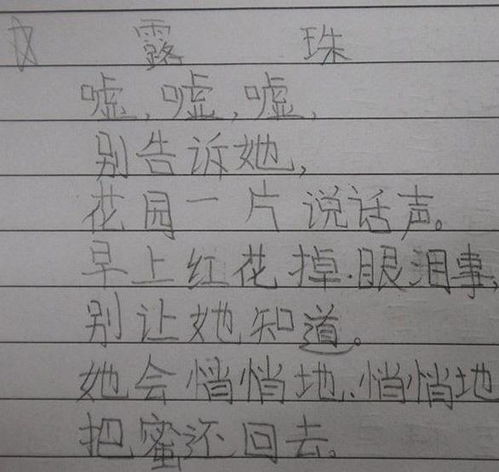 露珠
嘘,嘘,嘘,
别告诉她,
花园一片说话声。
早上红花掉·眼泪事,
别让她知道。
她会悄悄地、悄悄地
把蜜还回去。